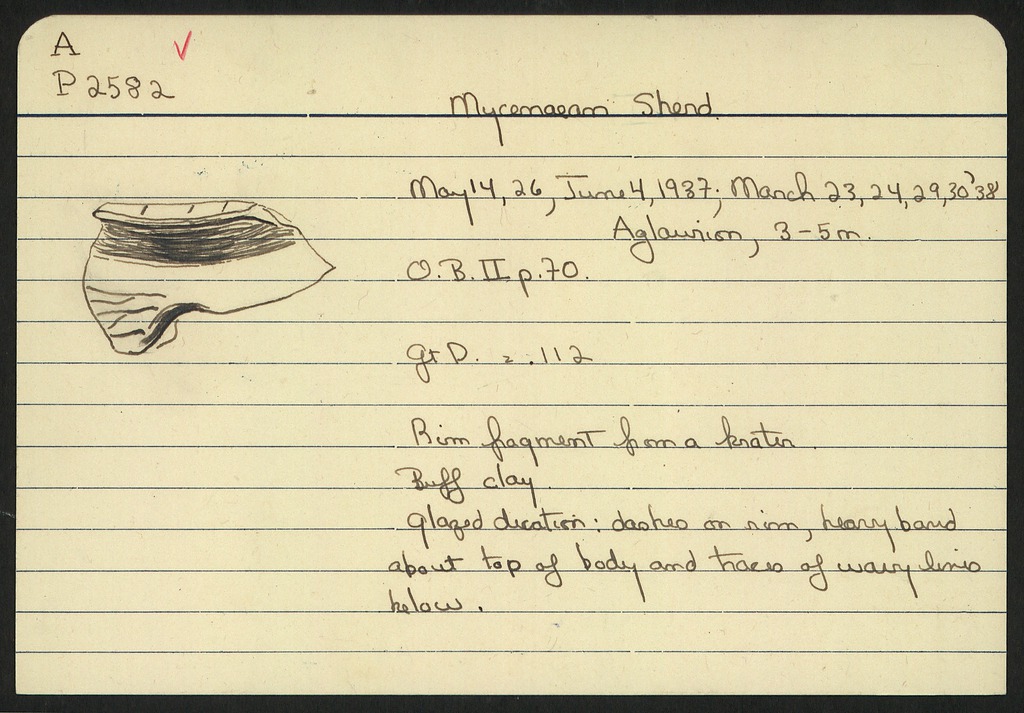 A
P 2582
Mycenaean Sherd.
May 14, 26, June 4, 1937; March 23, 24, 29, 30 '38
Aglaurion, 3-5m.
O.B. II p. 70.
Gt D. = .112
Rim fragment from a krater.
Buff clay.
Glazed decration: dashes on rim, heavy band
about top of body and traces of wavy lines
below.